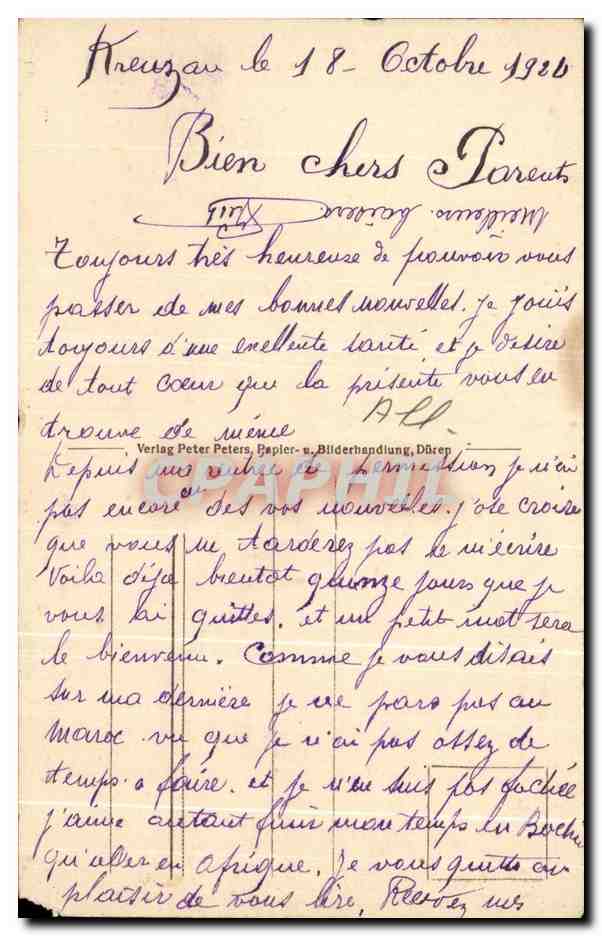 Kreuzau le 18 - Octobre 192
Bien chers Parents
Meilleurs baisers
Toujours très heureuse de pouvoir vous
passer de mes bonnes nouvelles. je jouis
toujours d'une exellente santé et je désire
de tout cœur que la présente vous en
trouve de même
All.
Verlag Peter Peters, Papier- u. Bilderhandlung, Düren
CPAPHIL
Depuis ma rentrée de permission je n'ai
pas encore des vos nouvelles. j'ose croire
que vous ne tarderez pas de m'écrire
Voila déja bientot quinze jours que je
vous ai quittes. et un petit mot sera
le bienvenu. Comme je vous disais
sur ma dernière je ne pars pas au
Maroc vu que je n'ai pas assez de
temps a faire. et je n'en suis pas fachée
j'aime autant finir mon temps en Bochie
qu'aler en Afrique. Je vous quitte au
plaisir de vous lire. Recevez mes